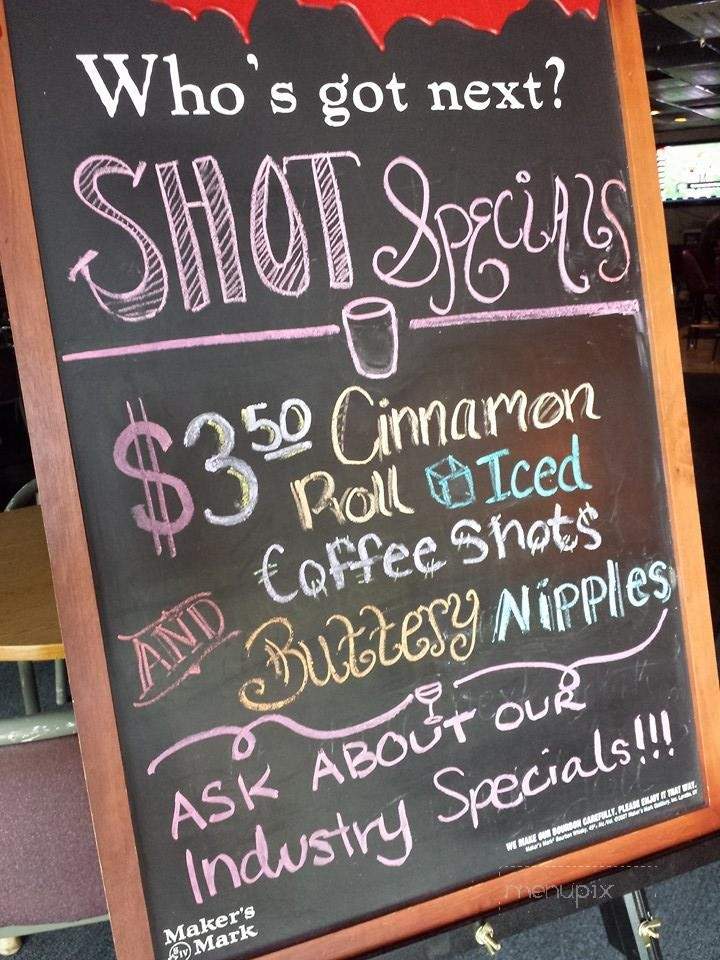 Who's got next?
SHOT Specials
$3.50 Cinnamon
Roll Iced
Coffee Shots
AND Buttery Nipples
ASK ABOUT OUR
Industry Specials!!!
WE MAKE OUR BOURBON CAREFULLY. PLEASE ENJOY IT THAT WAY.
menupix
Maker's
Mark